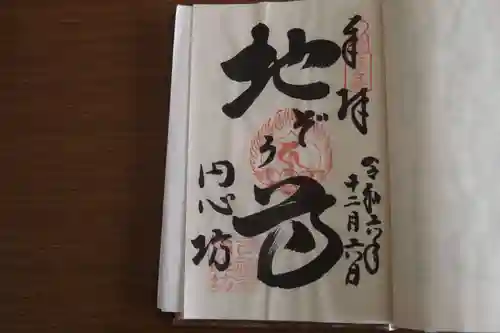 奉拝
令和六年
十二月六日
地ぞう尊
円心坊